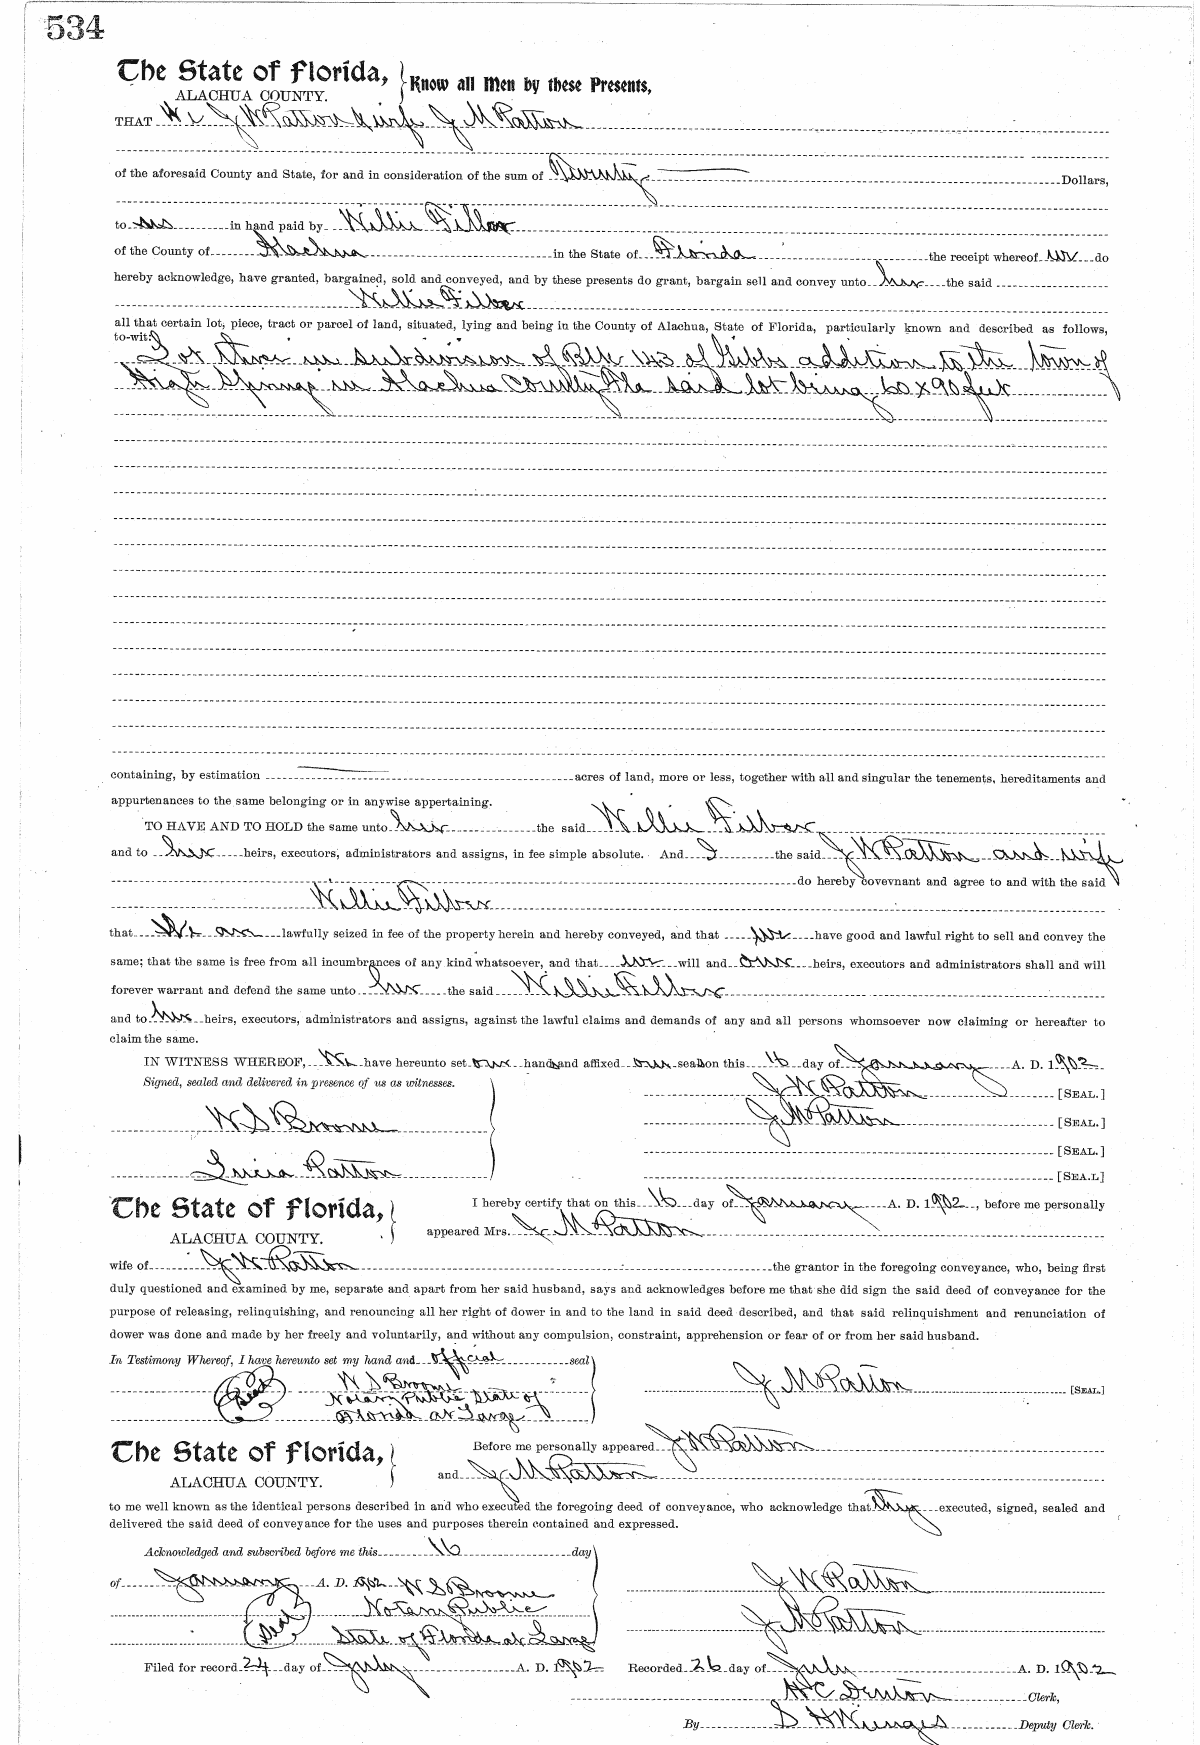 534
The State of Florida,
Know all Men by these Presents,
ALACHUA COUNTY.
THAT We J W Patton & wife J M Patton
of the aforesaid County and State, for and in consideration of the sum of Twenty Dollars,
to us in hand paid by Willie Filber
of the County of Alachua in the State of Florida the receipt whereof we do
hereby acknowledge, have granted, bargained, sold and conveyed, and by these presents do grant, bargain sell and convey unto her the said
Willie Filber
all that certain lot, piece, tract or parcel of land, situated, lying and being in the County of Alachua, State of Florida, particularly known and described as follows,
to-wit:
Lot three in subdivision of Blk 143 of Gibbs addition to the town of
High Springs in Alachua County Fla said lot being 60 x 90 feet
containing, by estimation acres of land, more or less, together with all and singular the tenements, hereditaments and
appurtenances to the same belonging or in anywise appertaining.
TO HAVE AND TO HOLD the same unto her the said Willie Filber
and to her heirs, executors, administrators and assigns, in fee simple absolute. And I the said J W Patton and wife
do hereby covevnant and agree to and with the said
Willie Filber
that We are lawfully seized in fee of the property herein and hereby conveyed, and that we have good and lawful right to sell and convey the
same; that the same is free from all incumbrances of any kind whatsoever, and that we will and our heirs, executors and administrators shall and will
forever warrant and defend the same unto her the said Willie Filber
and to her heirs, executors, administrators and assigns, against the lawful claims and demands of any and all persons whomsoever now claiming or hereafter to
claim the same.
IN WITNESS WHEREOF, We have hereunto set our hands and affixed our seals on this 16 day of January A. D. 1902
Signed, sealed and delivered in presence of us as witnesses.
J W Patton [SEAL.]
W S Broome
J M Patton [SEAL.]
[SEAL.]
Lucia Patton
[SEA.L]
The State of Florida,
ALACHUA COUNTY.
I hereby certify that on this 16 day of January A. D. 1902, before me personally
appeared Mrs. J M Patton
wife of J W Patton the grantor in the foregoing conveyance, who, being first
duly questioned and examined by me, separate and apart from her said husband, says and acknowledges before me that she did sign the said deed of conveyance for the
purpose of releasing, relinquishing, and renouncing all her right of dower in and to the land in said deed described, and that said relinquishment and renunciation of
dower was done and made by her freely and voluntarily, and without any compulsion, constraint, apprehension or fear of or from her said husband.
In Testimony Whereof, I have hereunto set my hand and official seal
W S Broome
J M Patton [SEAL.]
Seal
Notary Public State of
Florida at Large
The State of Florida,
ALACHUA COUNTY.
Before me personally appeared J W Patton
and J M Patton
to me well known as the identical persons described in and who executed the foregoing deed of conveyance, who acknowledge that they executed, signed, sealed and
delivered the said deed of conveyance for the uses and purposes therein contained and expressed.
Acknowledged and subscribed before me this 16 day
of January A. D. 1902 W S Broome
J W Patton
Notary Public
Seal
J M Patton
State of Florida at Large
Filed for record 24 day of July A. D. 1902 Recorded 26 day of July A. D. 1902
H C Denton Clerk,
By S H Wienges Deputy Clerk.